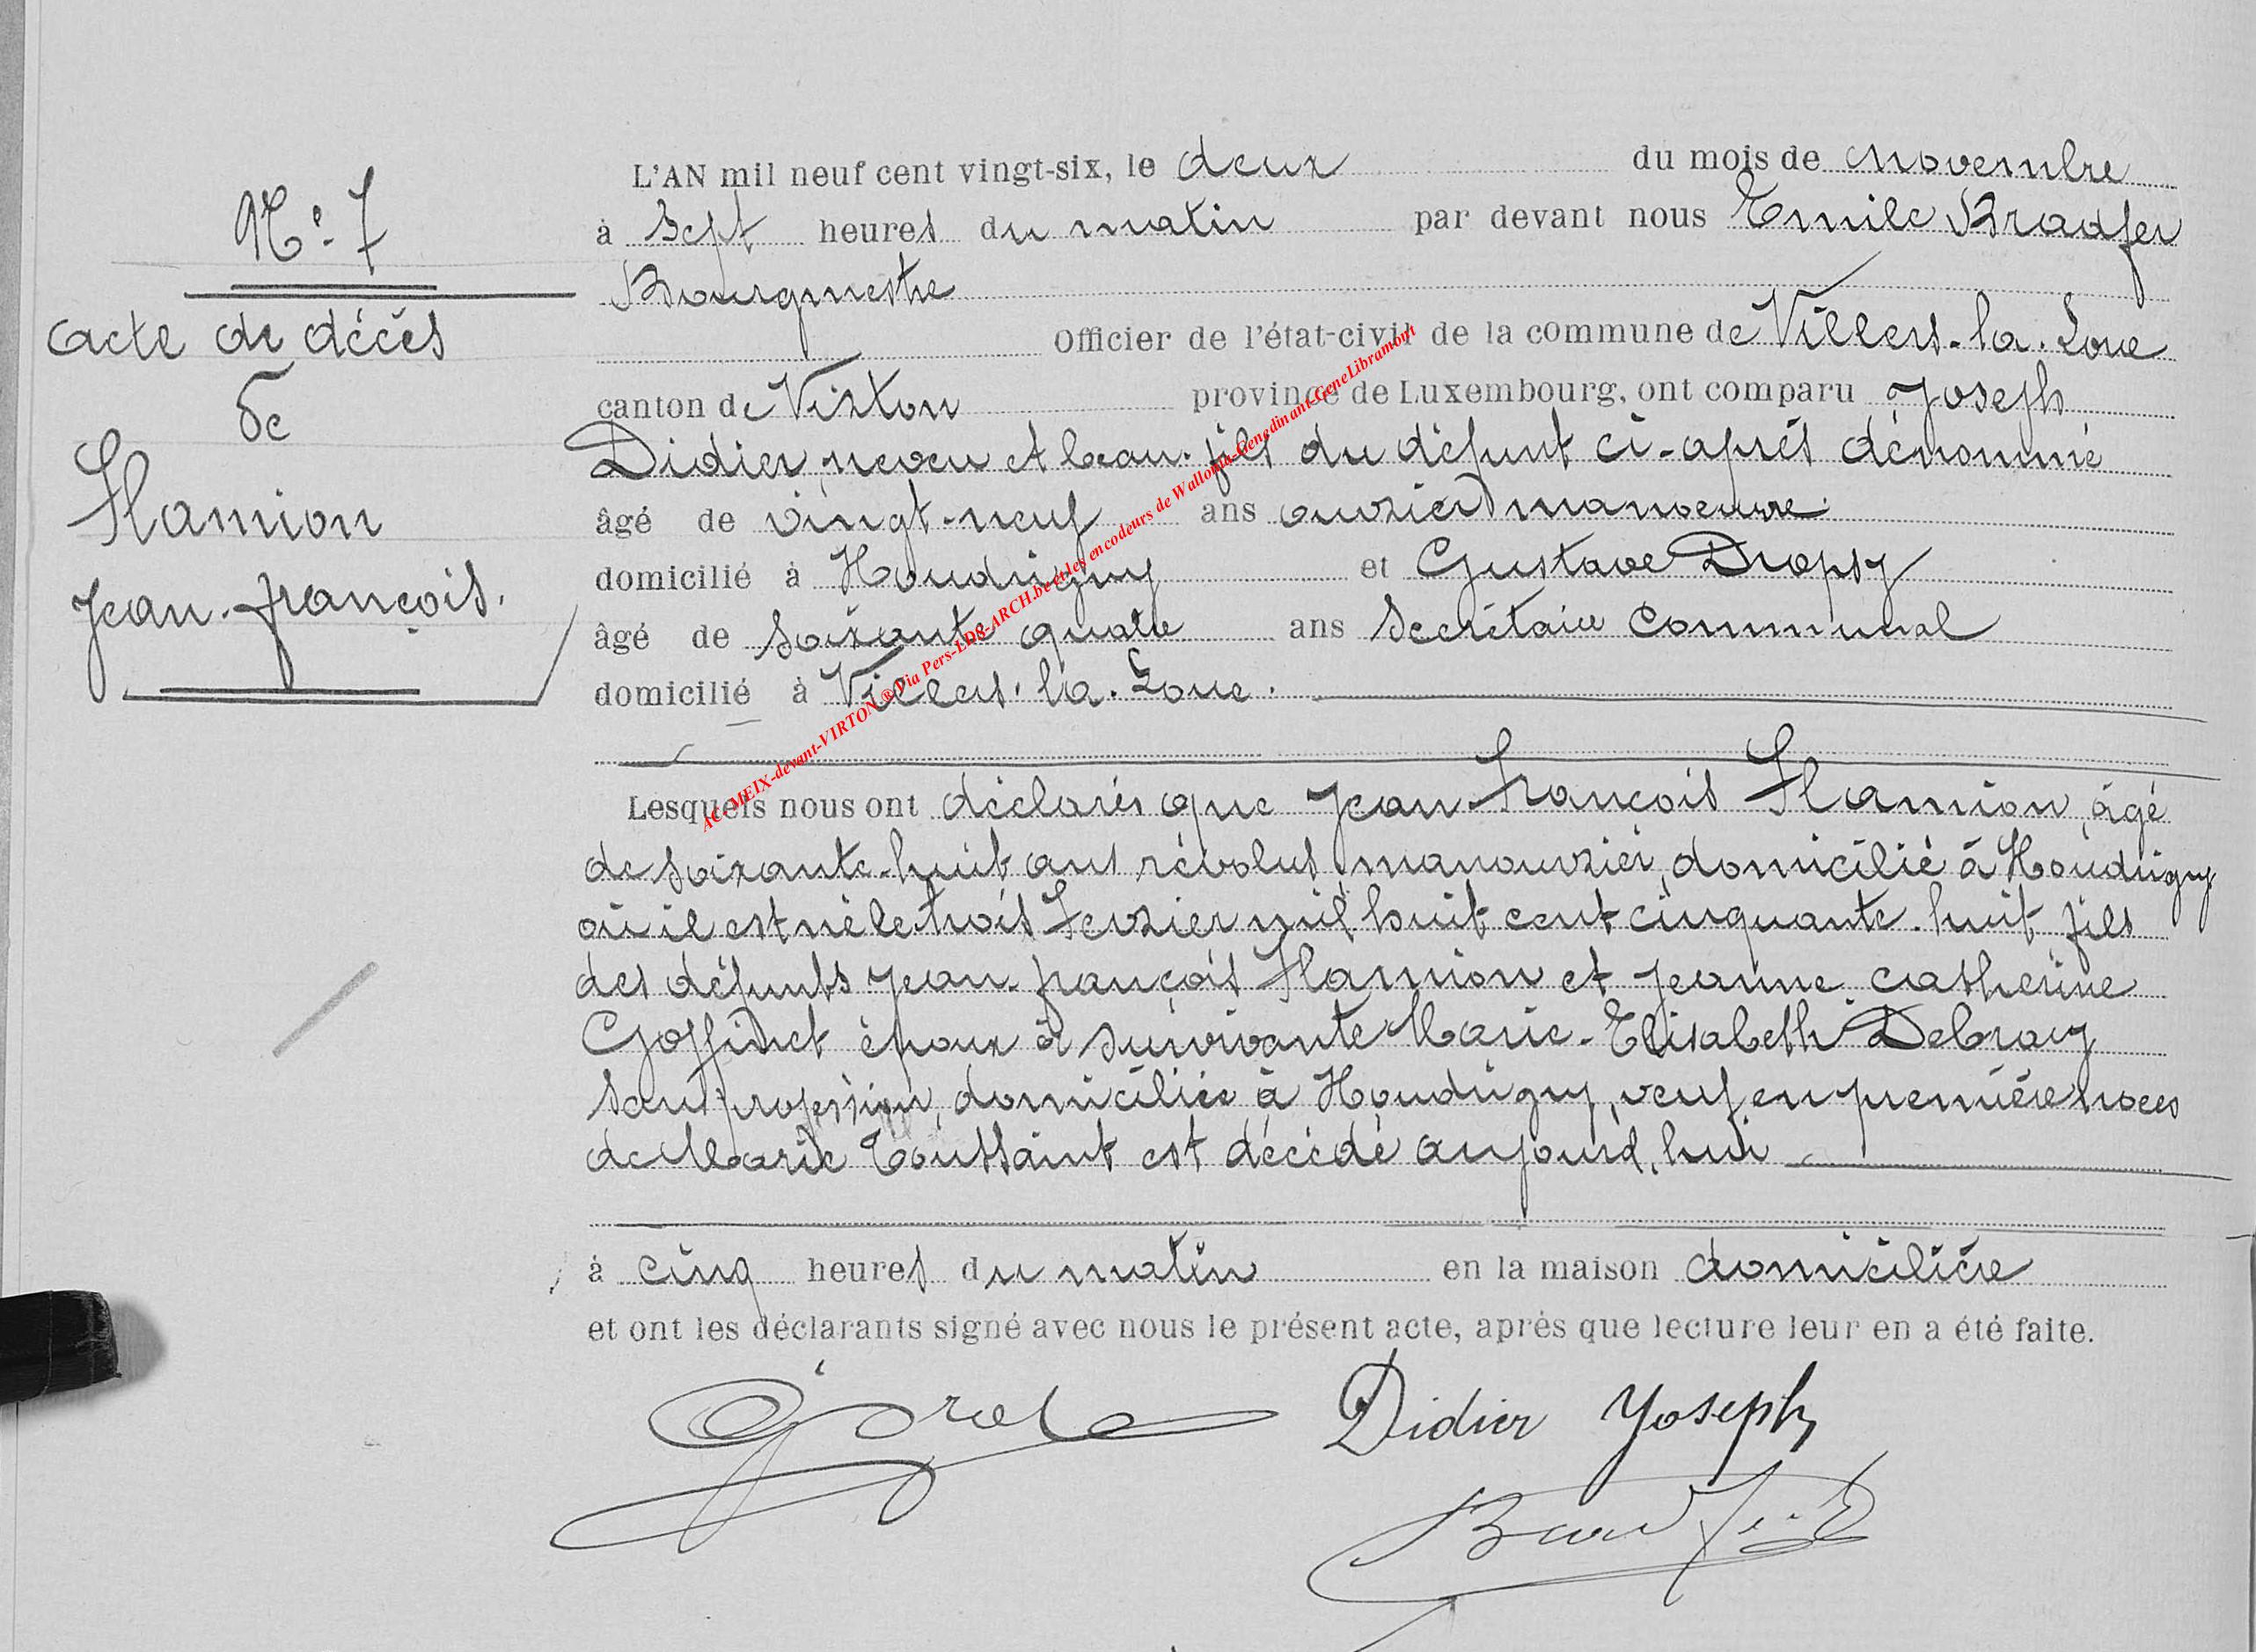 N° 7
acte de décès
de
Hamion
Jean-françois.
L'AN mil neuf cent vingt-six, le deux du mois de novembre
à sept heures du matin par devant nous Emile Bradfer
Bourgmestre
Officier de l'état-civil de la commune de Villers-la-Loue
canton de Virton province de Luxembourg, ont comparu Joseph
Didier, neveu et beau-fils du défunt ci-après dénommé
âgé de vingt-neuf ans ouvrier manoeuvre
domicilié à Houdrigny et Gustave Dropsy
âgé de soixante quatre ans Secrétaire Communal
domicilié à Villers-la-Loue.
Lesquels nous ont déclarés que Jean-François Hamion, âgé
de soixante-huit ans révolus manouvrier, domicilié à Houdrigny
où il est né le trois Fevrier mil huit cent cinquante-huit fils
des défunts Jean-françois Hamion et Jeanne Catherine
Goffinet époux à survivante Marie-Elisabeth Debray
sans profession, domiciliée à Houdrigny, veuf en première noces
de Marie Toussaint est décédé aujourd'hui
à cinq heures du matin en la maison domicilière
et ont les déclarants signé avec nous le présent acte, après que lecture leur en a été faite.
Didier Joseph
Bradfer
AC-MEIX-devant-VIRTON ® Via Pers-LDS-ARCH.be et les encodeurs de Wallonia-Genedinant-GeneLibramont